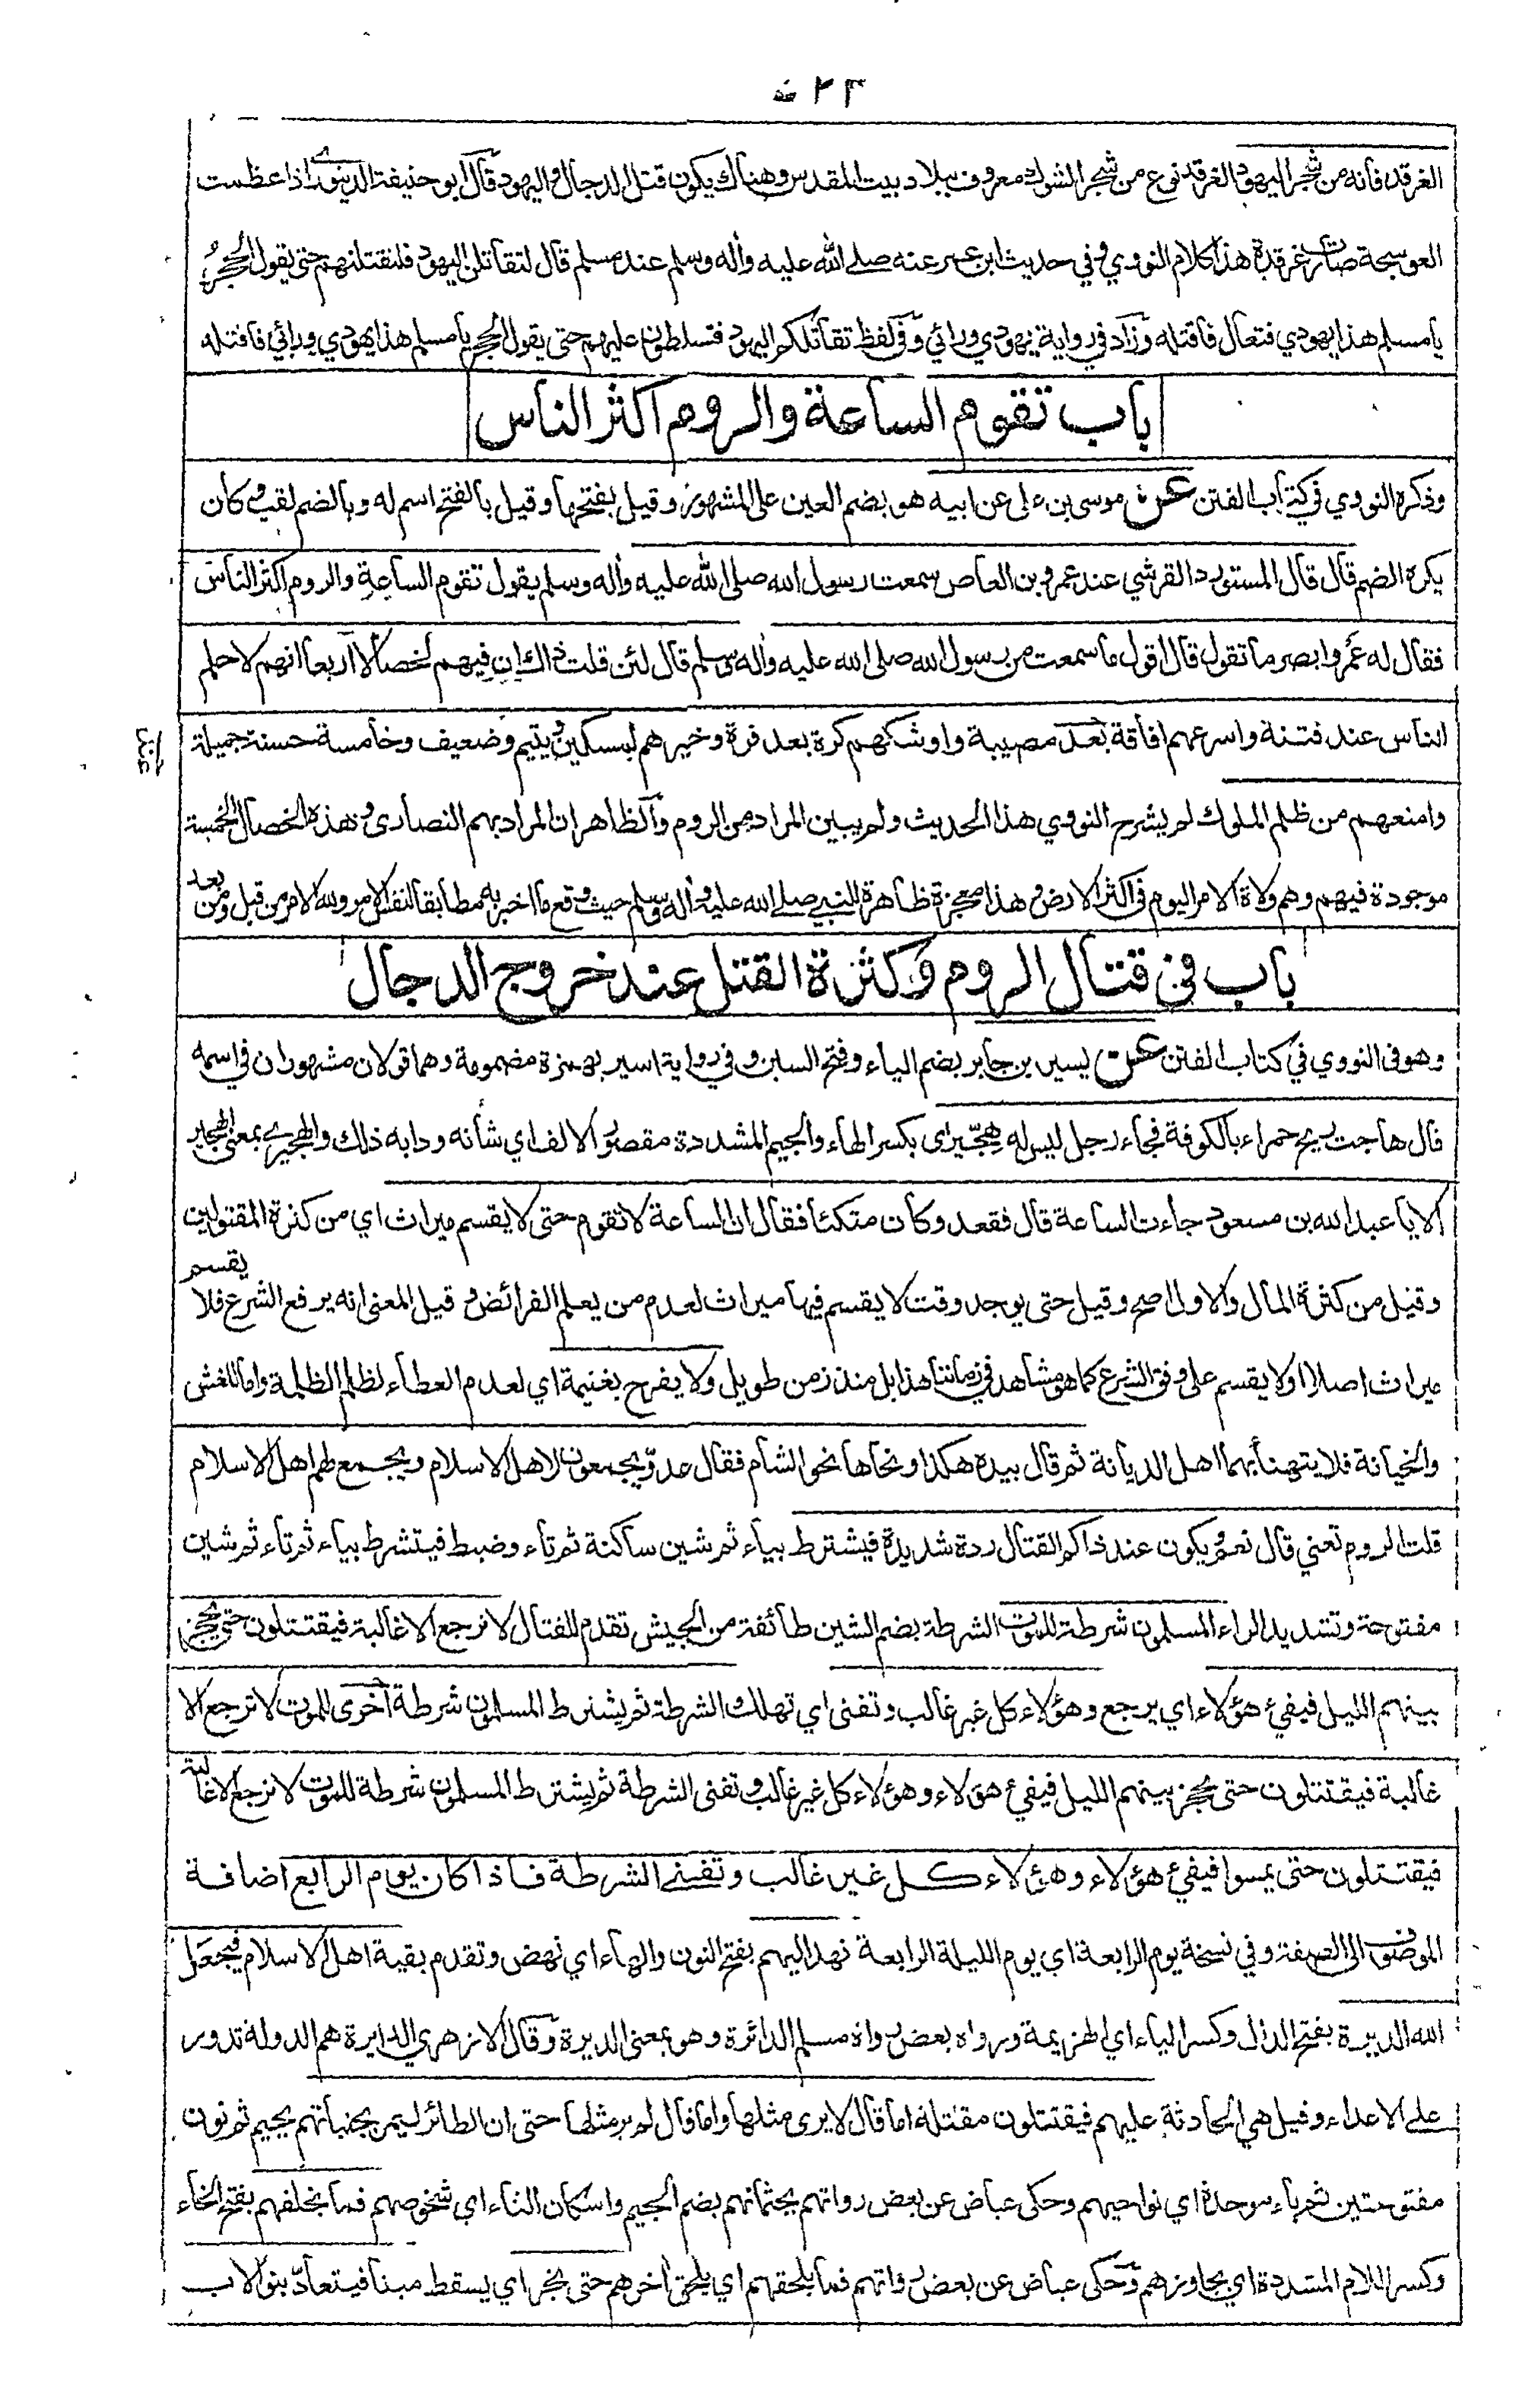 ٥٢٣
الغرقد فانه من شجر اليهود الغرقد نوع من شجر الشوك معروف ببلاد بيت المقدس وهناك يكون قتل الدجال واليهود وقال ابو حنيفة الدينوري اذا عظمت
العوسجة صارت غرقدة هذا كلام النووي وفي حديث ابن عمر عنه صلے الله عليه واله وسلم عند مسلم قال لتقاتلن اليهود فلتقتلنهم حتى يقول الحجر
يا مسلم هذا يهودي فتعال فاقتله وزاد في رواية يهودي ورائي وفي لفظ تقاتلكم اليهود فتسلطون عليهم حتى يقول الحجر يا مسلم هذا يهودي ورائي فاقتله
باب تقوم الساعة والروم اكثر الناس
وذكره النووي في كتاب الفتن عن موسى بن على عن ابيه هو بضم العين على المشهور وقيل بفتحها وقيل بالفتح اسم له وبالضم لقب وكان
يكره الضم قال قال المستورد القرشي عند عمرو بن العاص سمعت رسول الله صلى الله عليه واله وسلم يقول تقوم الساعة والروم اكثر الناس
فقال له عمرو ابصر ما تقول قال اقول ما سمعت من رسول الله صلى الله عليه واله وسلم قال لئن قلت ذلك ان فيهم لخصالا اربعا انهم لاحلم
الناس عند فتنة واسرعهم افاقة بعد مصيبة واوشكهم كرة بعد فرة وخيرهم لمسكين ويتيم وضعيف وخامسة حسنة جميلة
وامنعهم من ظلم الملوك لم يشرح النووي هذا الحديث ولم يبين المراد من الروم والظاهر ان المراد بهم النصارى وهذه الخصال الخمسة
موجودة فيهم وهم ولاة الامر اليوم في اكثر الارض وهذا معجزة ظاهرة للنبي صلے الله عليه واله وسلم حيث وقع ما اخبر به مطابقا لنفس الامر ولله الامر من قبل ومن بعد
باب في قتال الروم وكثرة القتل عند خروج الدجال
وهو في النووي في كتاب الفتن عن يسير بن جابر بضم الياء وفتح السين وفي رواية اسير بهمزة مضمومة وهما قولان مشهوران في اسمه
قال هاجت ريح حمراء بالكوفة فجاء رجل ليس له هِجّيرى بكسر الهاء والجيم المشددة مقصور الالف اي شأنه ودابه ذلك والهجيرے بمعنى الهجير
الا يا عبد الله بن مسعود جاءت الساعة قال فقعد وكان متكئا فقال ان الساعة لا تقوم حتى لا يقسم ميراث اي من كثرة المقتولين
وقيل من كثرة المال والاول اصح وقيل حتى يوجد وقت لا يقسم فيها ميراث لعدم من يعلم الفرائض وقيل المعنى انه يرفع الشرع فلا يقسم
ميراث اصلا او لا يقسم على وفق الشرع كما هو مشاهد في زماننا هذا بل منذ زمن طويل ولا يفرح بغنيمة اي لعدم العطاء لظلم الظلمة واما للغش
والخيانة فلا يتهنأ بهما اهل الديانة ثم قال بيده هكذا ونحاها نحو الشام فقال عدوّ يجمعون لاهل الاسلام ويجمع لهم اهل الاسلام
قلت الروم تعني قال نعم ويكون عند ذاكم القتال ردة شديدة فيشترط بياء ثم شين ساكنة ثم تاء وضبط فيتشرط بياء ثم تاء ثم شين
مفتوحة وتشديد الراء المسلمون شرطة للموت الشرطة بضم الشين طائفة من الجيش تقدم للقتال لا ترجع الا غالبة فيقتتلون حتى يحجز
بينهم الليل فيفيء هؤلاء اي يرجع وهؤلاء كل غير غالب وتفنى اي تهلك الشرطة ثم يشترط المسلمون شرطة اخرى للموت لا ترجع الا
غالبة فيقتتلون حتى يحجز بينهم الليل فيفيء هؤلاء وهؤلاء كل غير غالب وتفنى الشرطة ثم يشترط المسلمون شرطة للموت لا ترجع الا غالبة
فيقتتلون حتى يمسوا فيفيء هؤلاء وهؤلاء كل غير غالب وتفنے الشرطة فاذا كان يوم الرابع اضافة
الموصوف الى الصفة وفي نسخة يوم الرابعة اي يوم الليلة الرابعة نهد اليهم بفتح النون والهاء اي نهض وتقدم بقية اهل الاسلام فيجعل
الله الديرة بفتح الدال وكسر الياء اي الهزيمة ورواه بعض رواة مسلم الدائرة وهو بمعنى الديرة وقال الازهري الدايرة هم الدولة تدور
علے الاعداء وقيل هي الحادثة عليهم فيقتتلون مقتلة اما قال لا يرى مثلها واما قال لم ير مثلها حتى ان الطائر ليمر بجنباتهم بجيم ثم نون
مفتوحتين ثم باء موحدة اي نواحيهم وحكى عياض عن بعض رواتهم بجثمانهم بضم الجيم واسكان الثاء اي شخوصهم فما يخلفهم بفتح الخاء
وكسر اللام المشددة اي يجاوزهم وحكى عياض عن بعض رواتهم فما يلحقهم اي يلحق اخرهم حتى يخر اي يسقط ميتا فيتعادّ بنو الاب